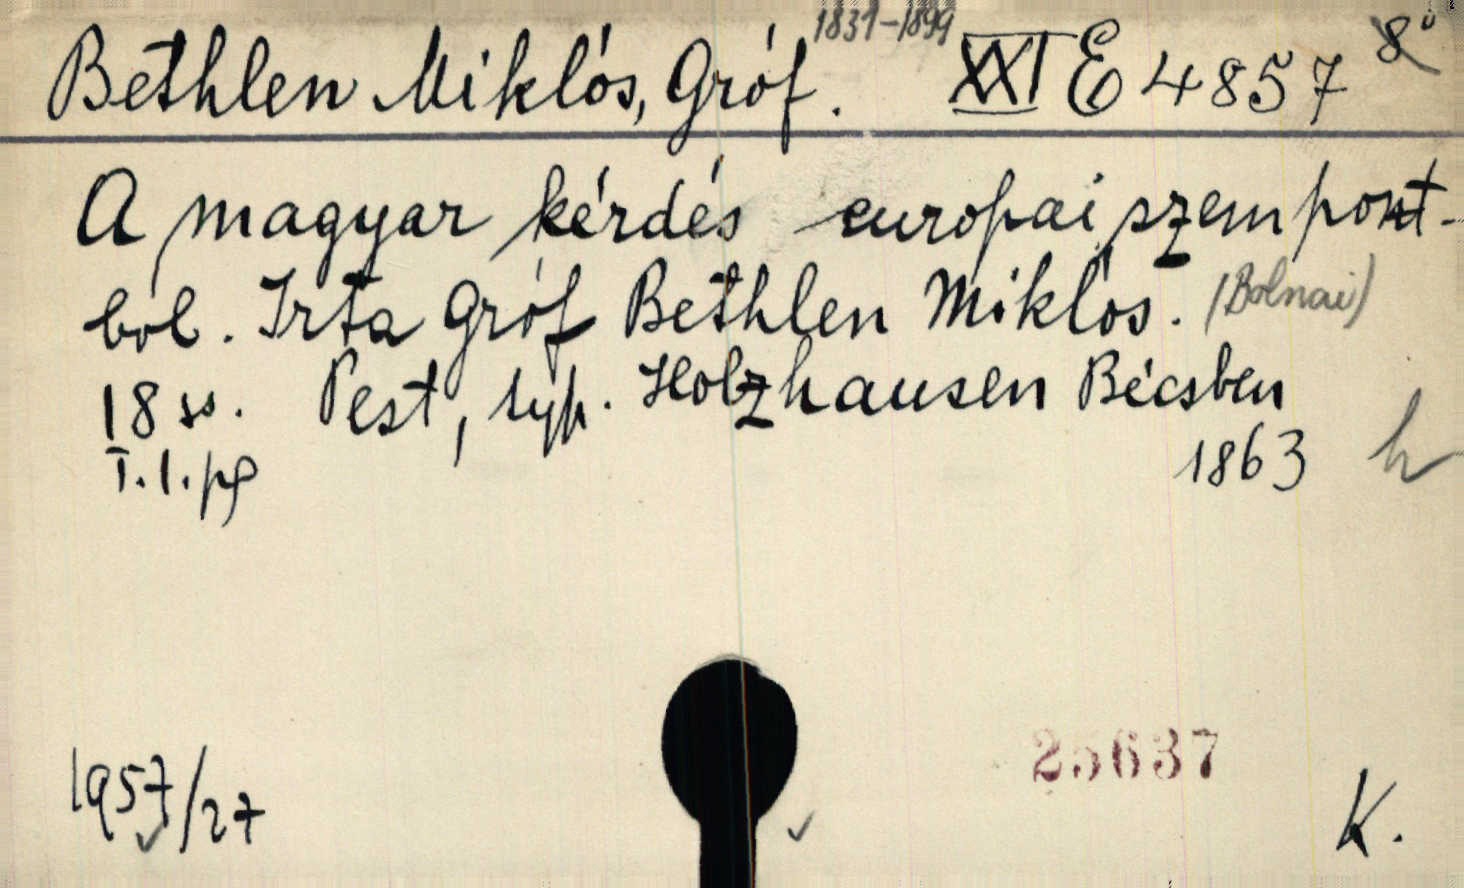 1831-1899
Bethlen Miklós, Gróf. XXI E 4857 8°
A magyar kérdés europai szempont-
ból. Irta Gróf Bethlen Miklós. (Bolnai)
18 ss. Pest, typ. Holzhausen Bécsben
T.1.pp 1863 h
25637
1957/27 K.